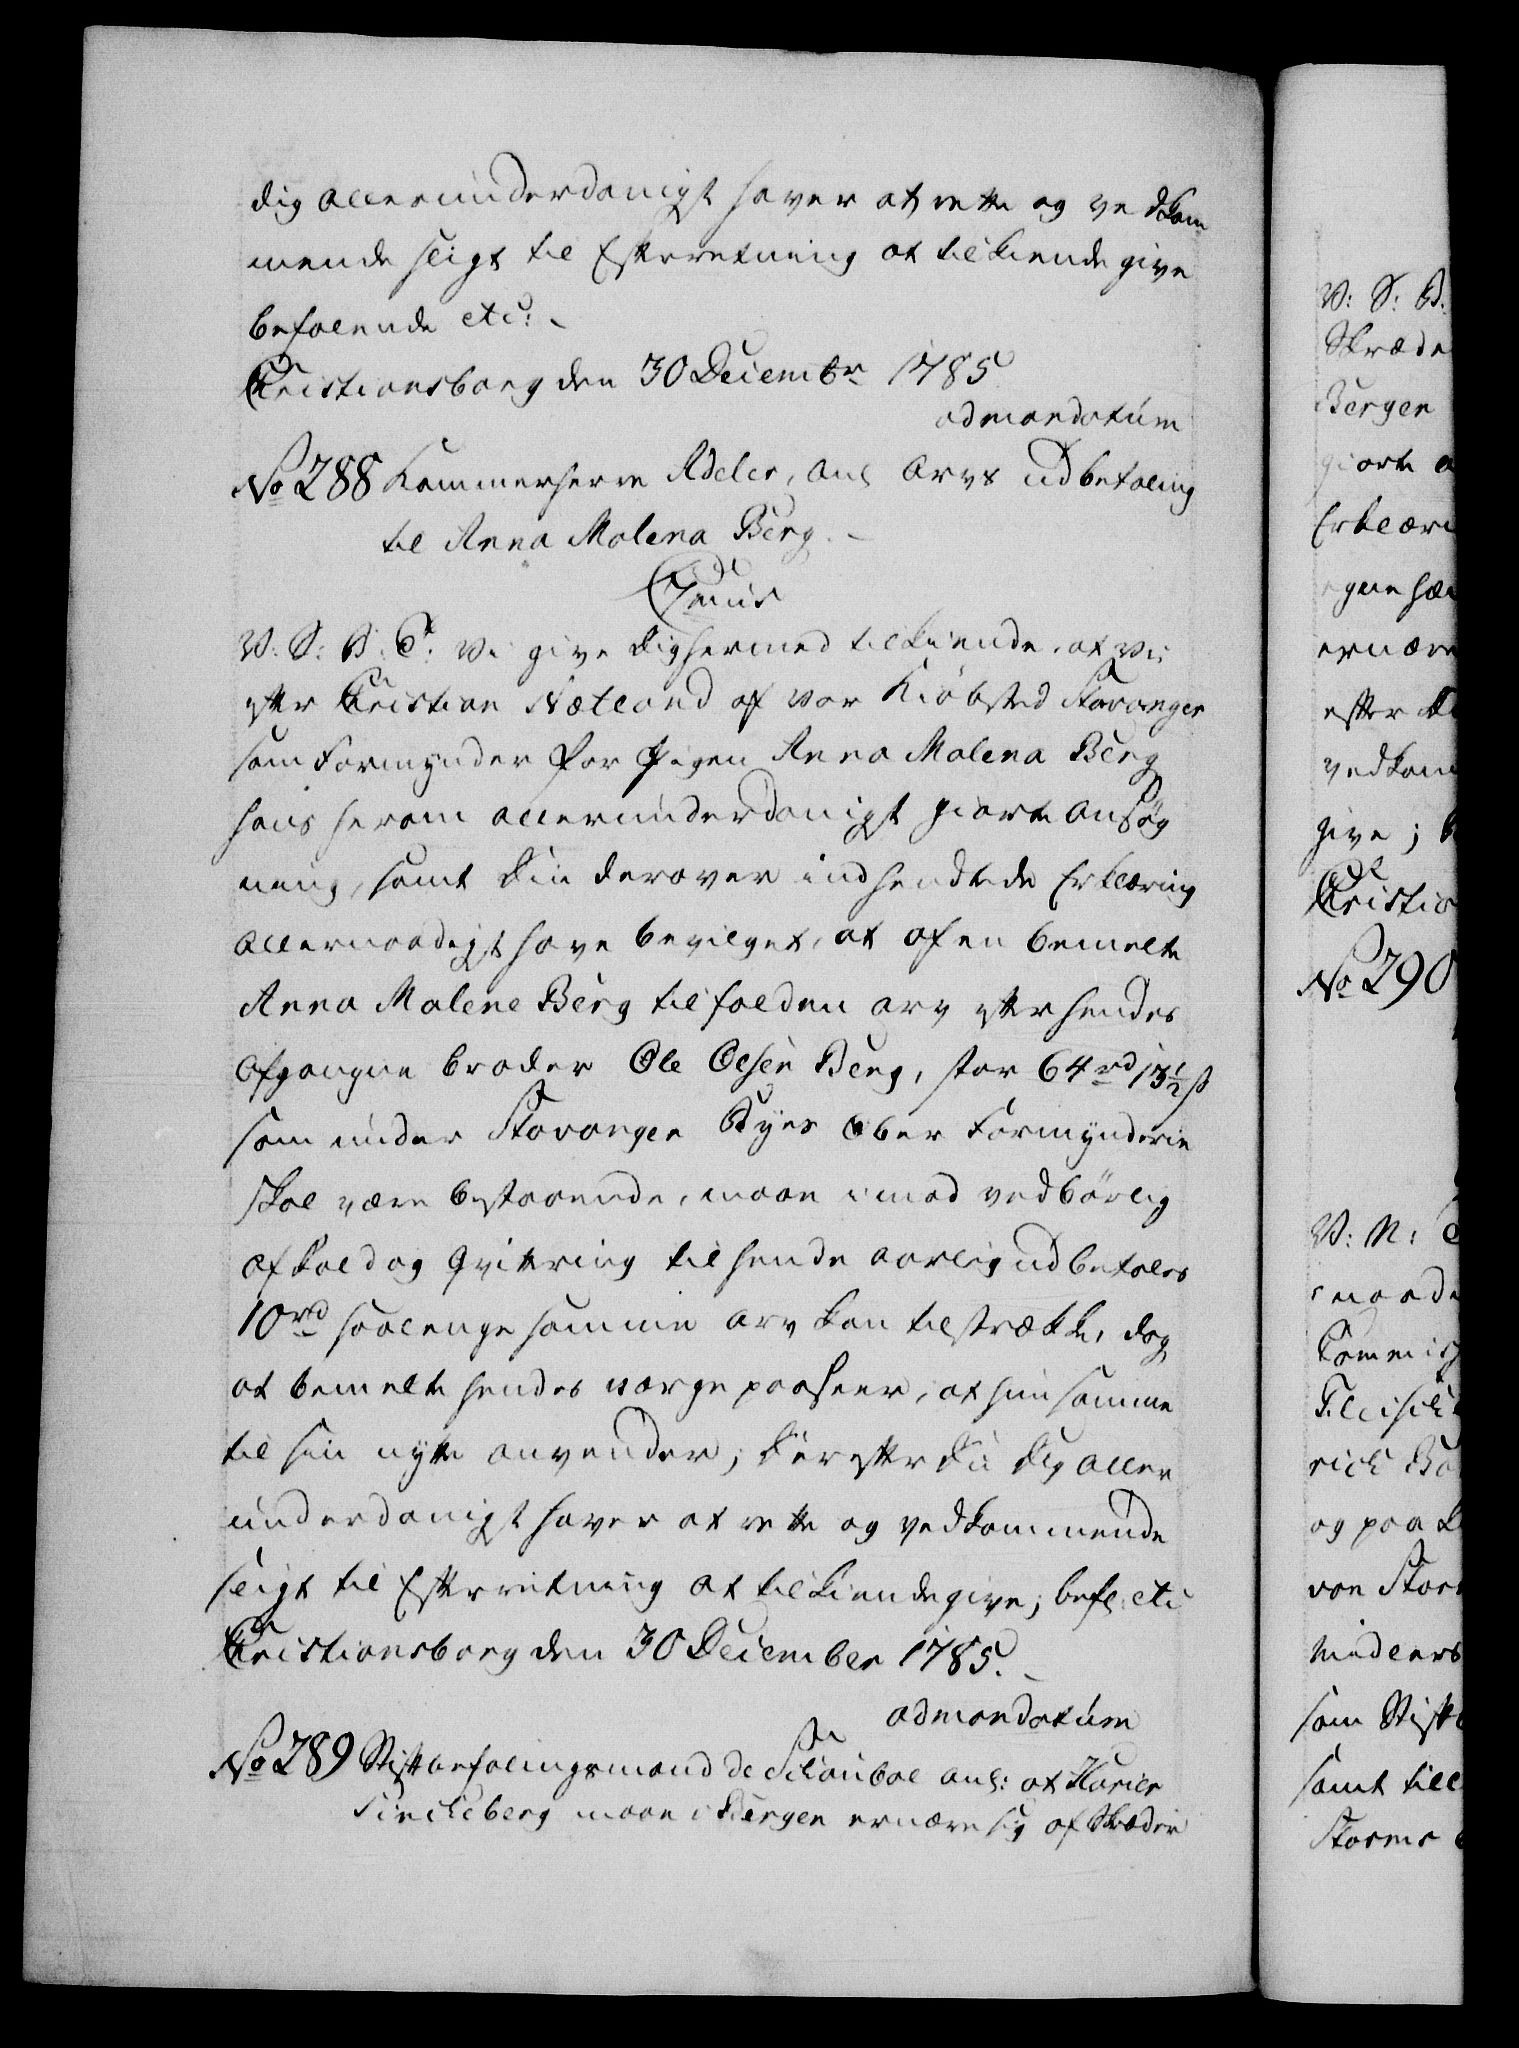 dig allerunderdanigst haver at rette og vedkom
mende sligt til Efterretning at tilkiendegive
befalende etc:
Christiansborg den 30 Decembr 1785
admandatum
No 288 Kammerherre Adeler, anl Arvs udbetaling
til Anna Malena Berg.
C7mus
V: S: B: T: Vi give dig hermed tilkiende, at Vi
efter Christian Nætland af vor Kiöbsted Stavanger
som Formynder for Pigen Anna Malena Berg
hans herom allerunderdanigst giorte Ansøg
ning, samt din derover indsendte Erklæring
allernaadigst have bevilget, at af en bemelte
Anna Malene Berg tilfalden arv efter hendes
afgangne broder Ole Olsen Berg, stor 64 rd 13½ ß
som under Stavanger Byes Ober Formynderie
skal være bestaaende, maae imod vedbörlig
afkald og Qvittering til hende aarlig udbetales
10 rd saalenge samme arv kan tilstrække, dog
at bemelte hendes værge paaseer, at hun samme
til sin nytte anvender; Derefter du dig aller
underdanigst haver at rette og vedkommende
sligt til Efterretning at tilkiendegive; befl: etc
Christiansborg den 30 December 1785.
admandatum
No 289 Stiftbefalingsmand de Schouboe anl: at
berg maae i Bergen ernære sig af Skræder
V: S: B:
Skræde
Bergen
giorte a
Erklæri
egne hæn
ernære
efter
vedkom
give; b
Christia
No 290
V: N: T
naade
Commiss
rich
og paa
von Stor
som Stift
samt till
Storms